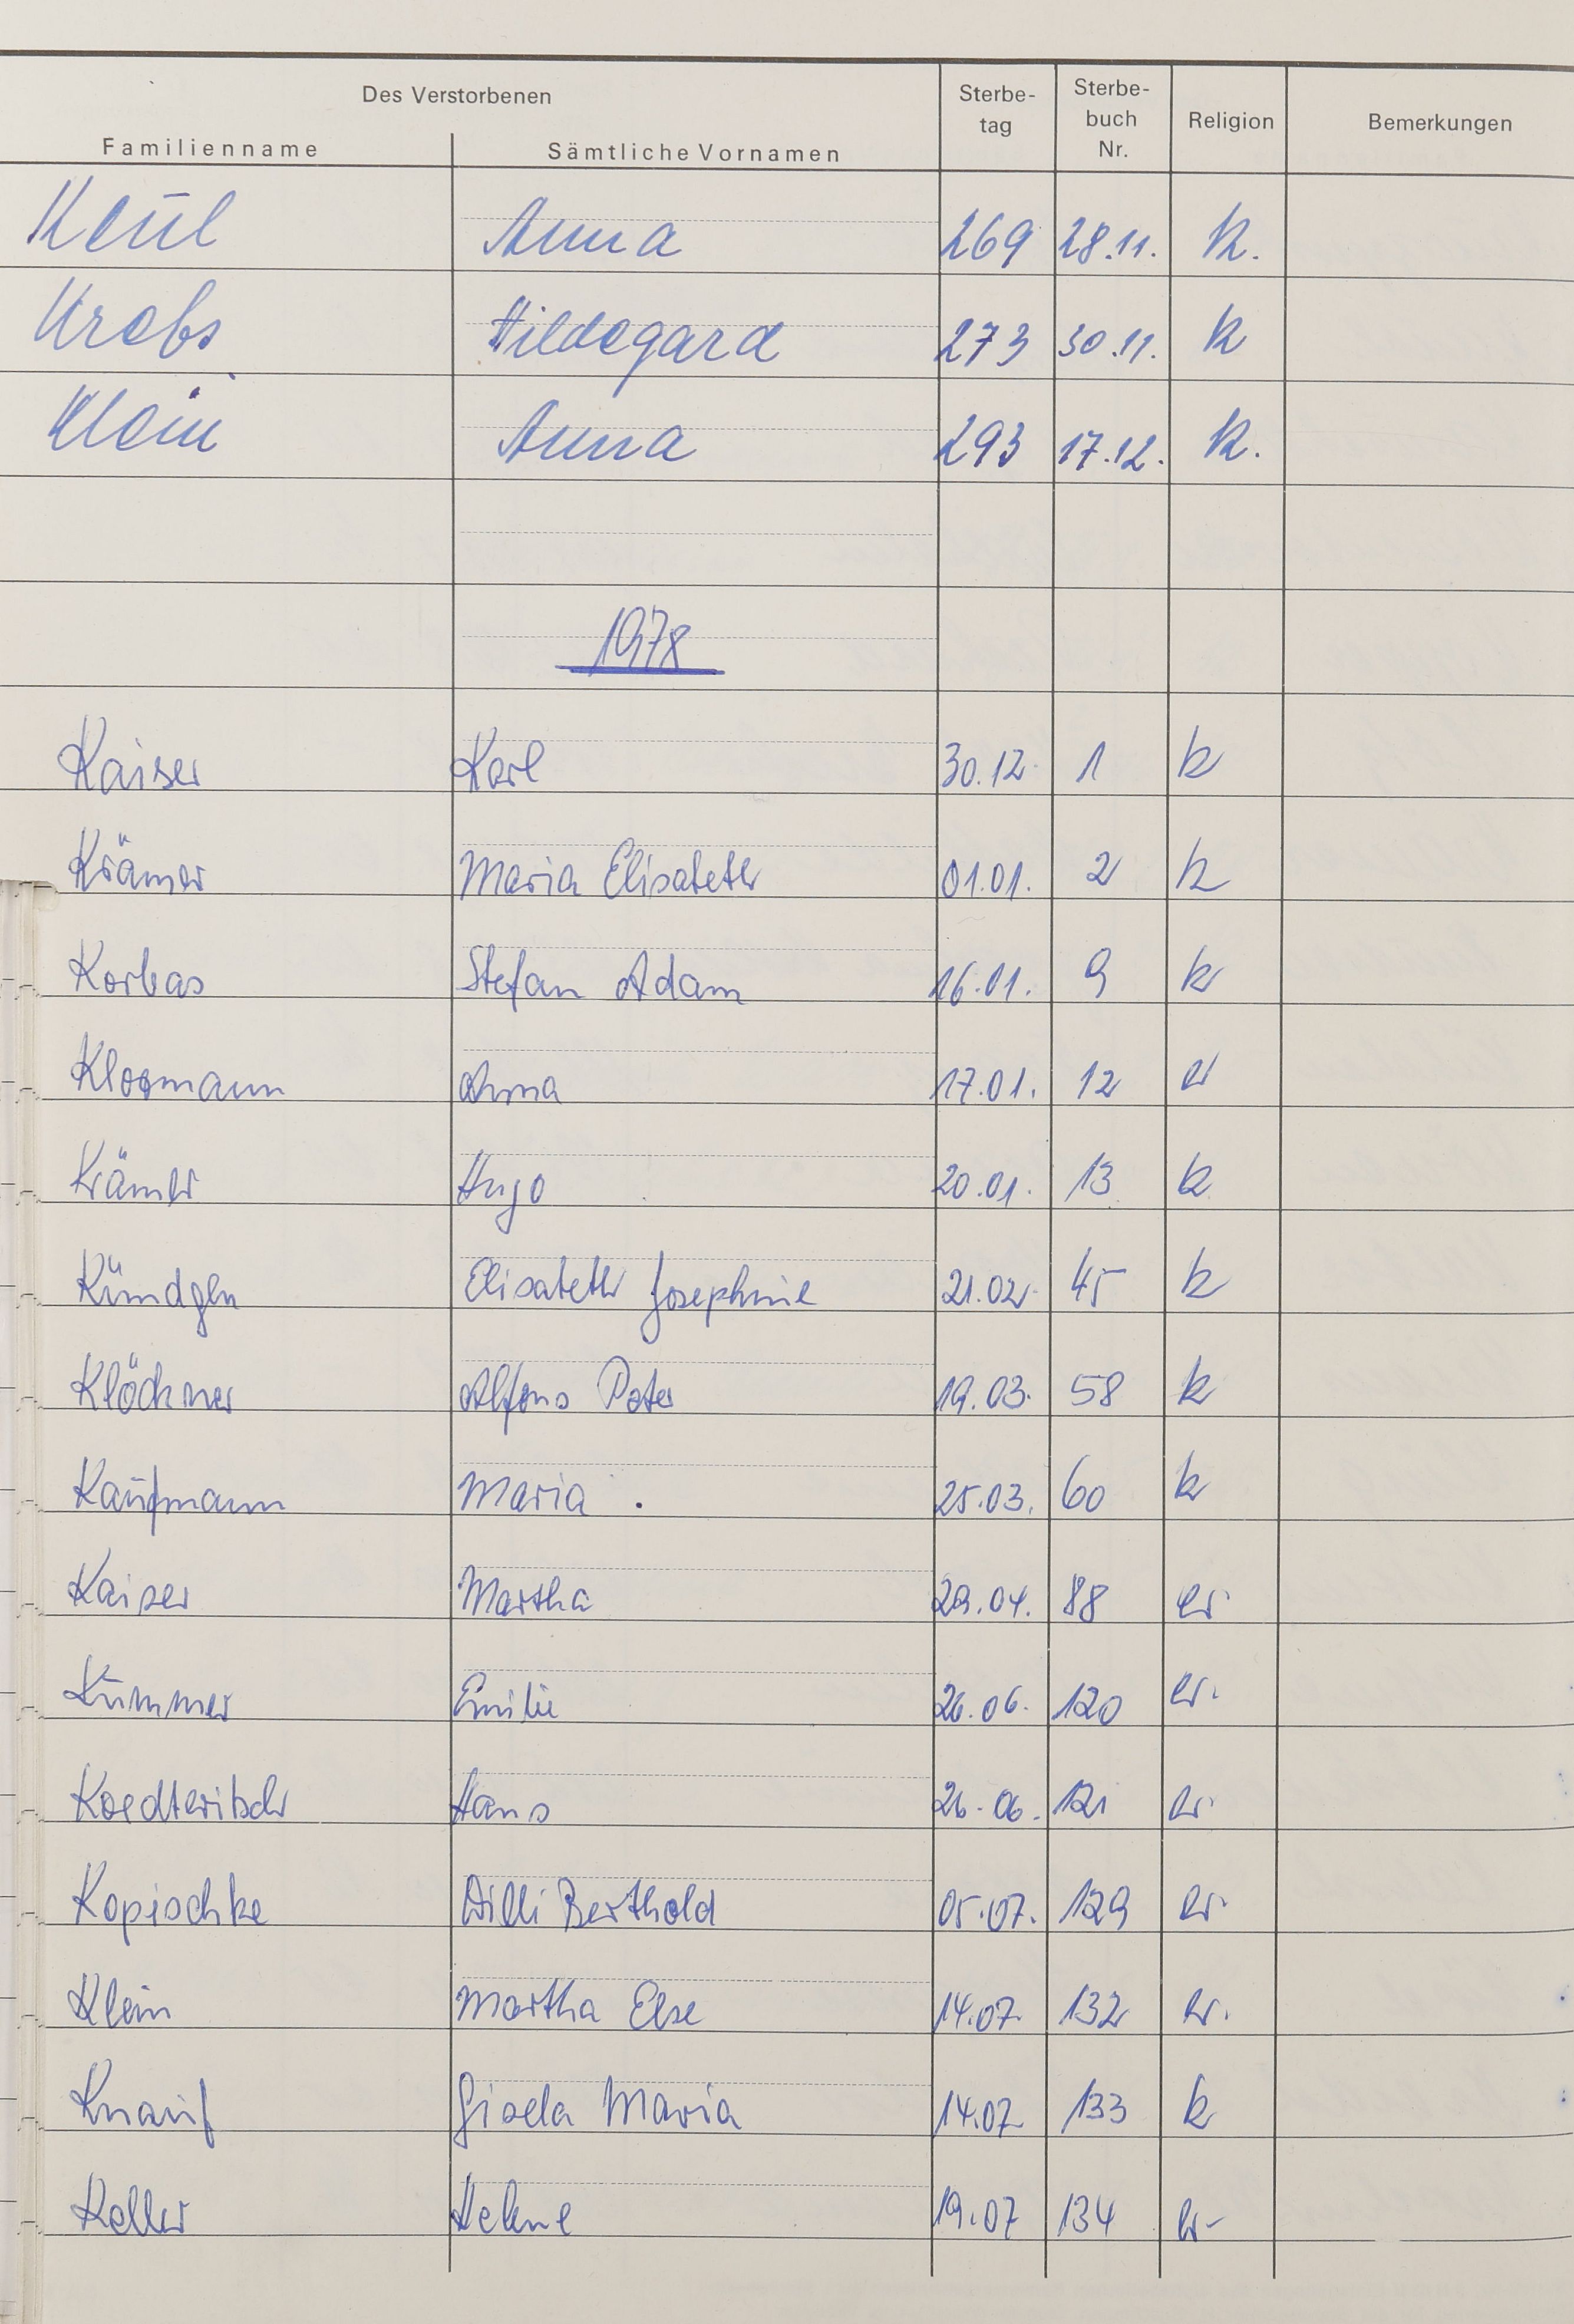 Des Verstorbenen Sterbe- Sterbe- Religion Bemerkungen
Familienname Sämtliche Vornamen tag buch
Nr.
Keul Anna 269 28.11. k.
Krebs Hildegard 273 30.11. k
Klein Anna 293 17.12. k.
1978
Kaiser Karl 30.12. 1 k
Krämer Maria Elisabeth 01.01. 2 k
Korbas Stefan Adam 16.01. 9 k
Anna 17.01. 12 ev
Krämer Hugo 20.01. 13 k
Kümdgen Elisabeth Josephine 21.02. 45 k
Klöckner Alfons Peter 19.03. 58 k
Kaufmann Maria . 25.03. 60 k
Kaiser Martha 29.04. 88 ev.
Kummer Emilie 26.06. 120 ev.
Koedteritsch Hans 26.06. 121 ev.
Kopischke Willi Berthold 05.07. 129 ev.
Klein Martha Else 14.07. 132 ev.
Knauf Gisela Maria 14.07. 133 k
Keller Helene 19.07 134 ev.